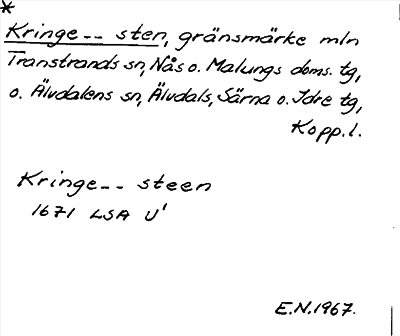 *
Kringe-- sten, gränsmärke mln
Transtrands sn, Nås o. Malungs doms. tg,
o. Älvdalens sn, Älvdals, Särna o. Idre tg,
Kopp. l.
Kringe-- steen
1671 LSA U'
E.N. 1967.